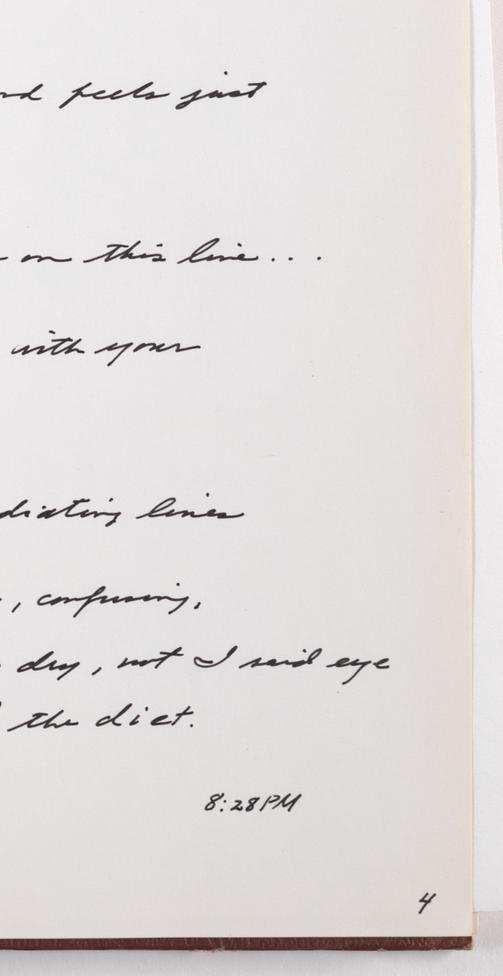 feels just
on this line...
with your
diating lines
, confusing,
dry, not I said eye
the diet.
8:28PM
4